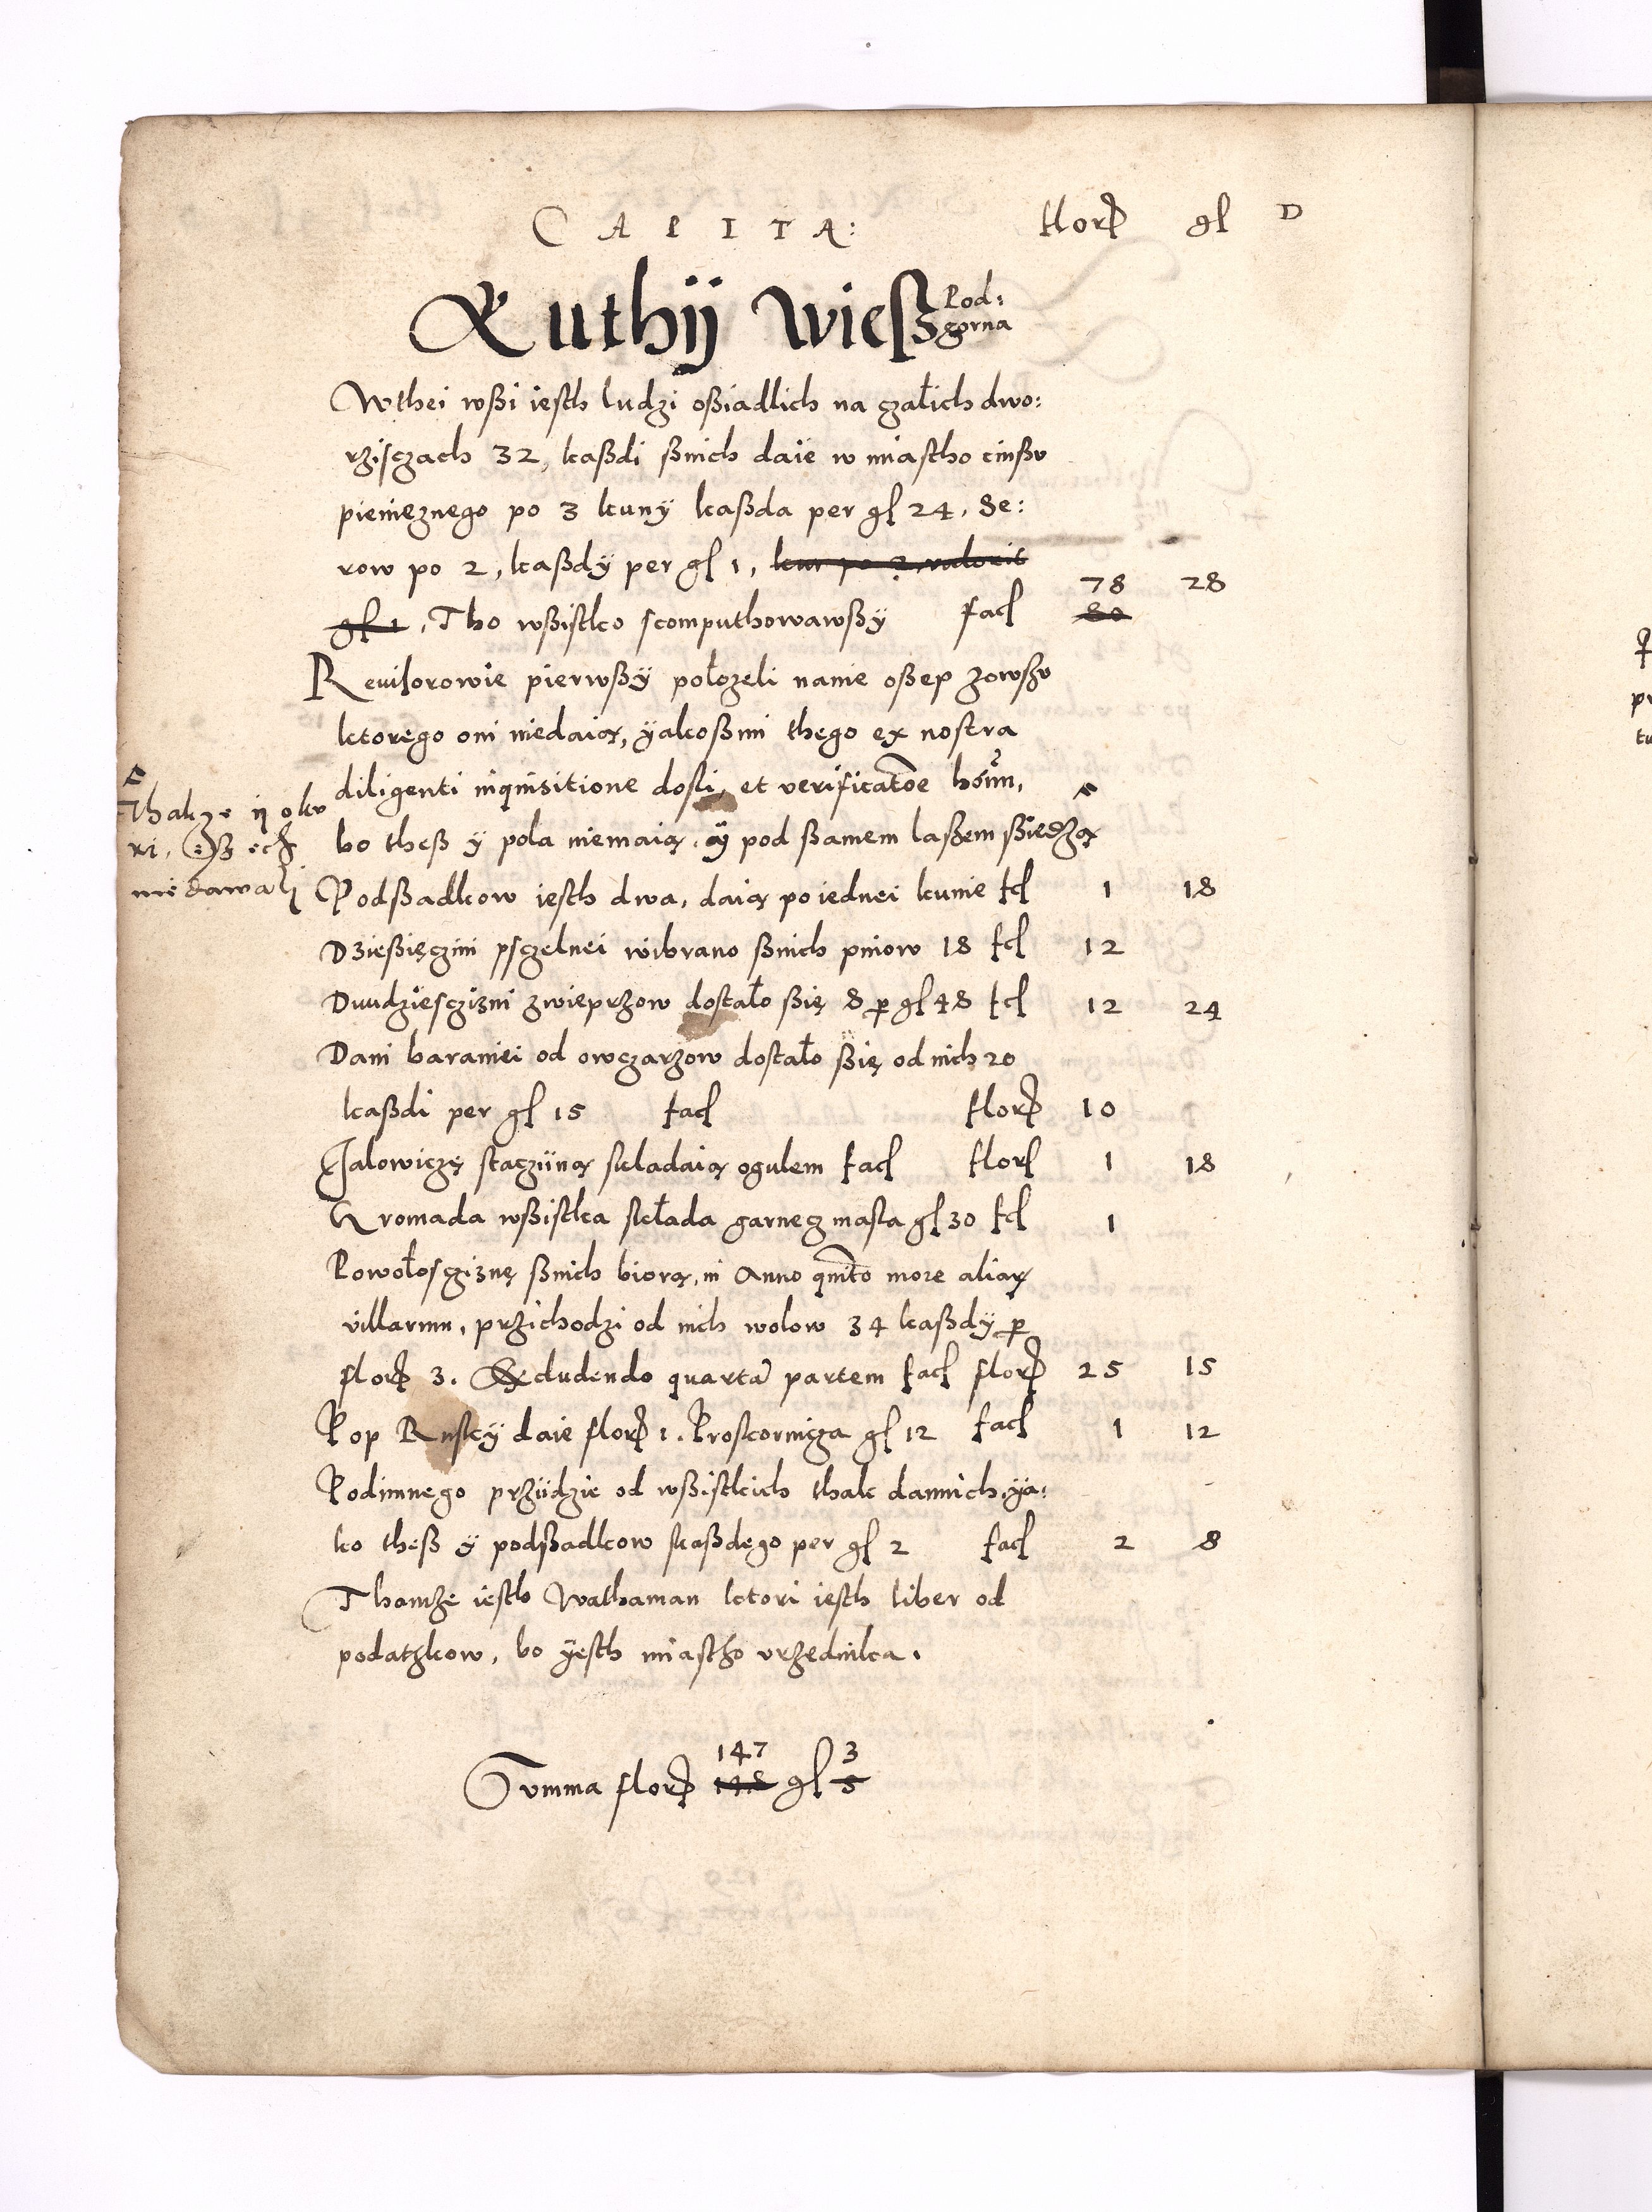 CAPITA: flor gl D
Kuthÿ Wießz Pod:
gorna
Wthei wßi iesth ludzi oßiadlich na czałich dwo:
rziſczach 32, kaßdi ßnich daie w miastho cinßv
pienieznego po 3 kuny kaßda per gl 24, Se:
row po 2, kaßdy per gl 1, kur po 2 valoris
gl 1, Tho wßistko scomputhowawßÿ facł 78 28
80
Reuisorowie pierwßÿ położeli nanie oßep zowsżv
ktorego oni niedaią, ÿakoßmi thego ex nostra
diligenti inquisitione dosli, et verificatoe
bo theß ÿ pola niemaią, ÿ pod ßamem laßem ßiedzą
Thakze ii
niedawali
Podßadkow iesth dwa, daią po iednei kunie fcł 1 18
Dzießięczini psczelnei wibrano ßnich pniow 18 fcł 12
Dwudziesczizni zwieprzow dostało ßię 8 p gl 48 fcł 12 24
Dani baraniei od owczarzow dostało ßię od nich 20
kaßdi per gl 15 facł flor 10
Jalowiczę staczÿną skladaią ogulem facł flor 1 18
Gromada wßistka składa garnecz masla gl 30 fcł 1
Powołoscziznę ßnich biorą, in Anno quinto more aliar
villarum, przichodzi od nich wolow 34 kaßdÿ p
flor 3. Excludendo quarta partem facł flor 25 15
Pop Ruskÿ daie flor 1. Proskornicza gl 12 facł 1 12
Podimnego przÿdzie od wßistkich thak dannich, ÿa:
ko theß ÿ podßadkow skaßdego per gl 2 facł 2 8
Thamże iesth Wathaman ktori iesth liber od
podatzkow, bo ÿesth miastho vrzednika.
Summa flor 147 gl 3
148 5